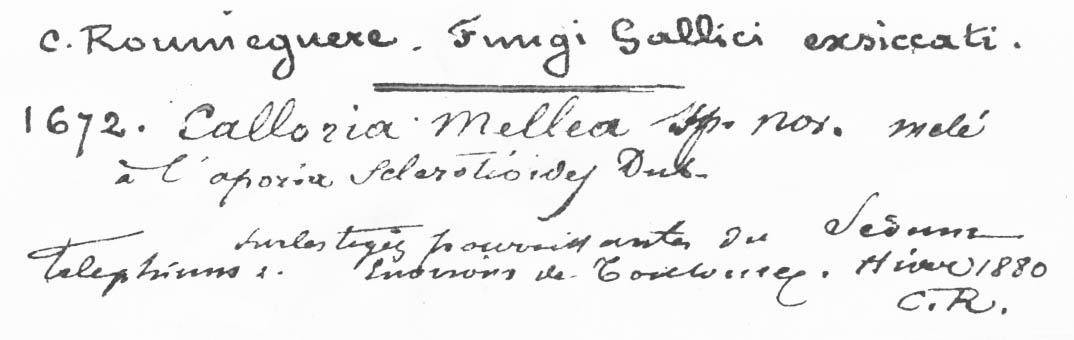 C. Roumeguere. Fungi Gallici exsiccati.
1672. Calloria Mellea Sp. nov. melé
à l'aporia Sclerotioides Dub.
Sur les tiges pourrissantes du Sedum
Telephium. Environs de Toulouse. Hiver 1880
C. R.